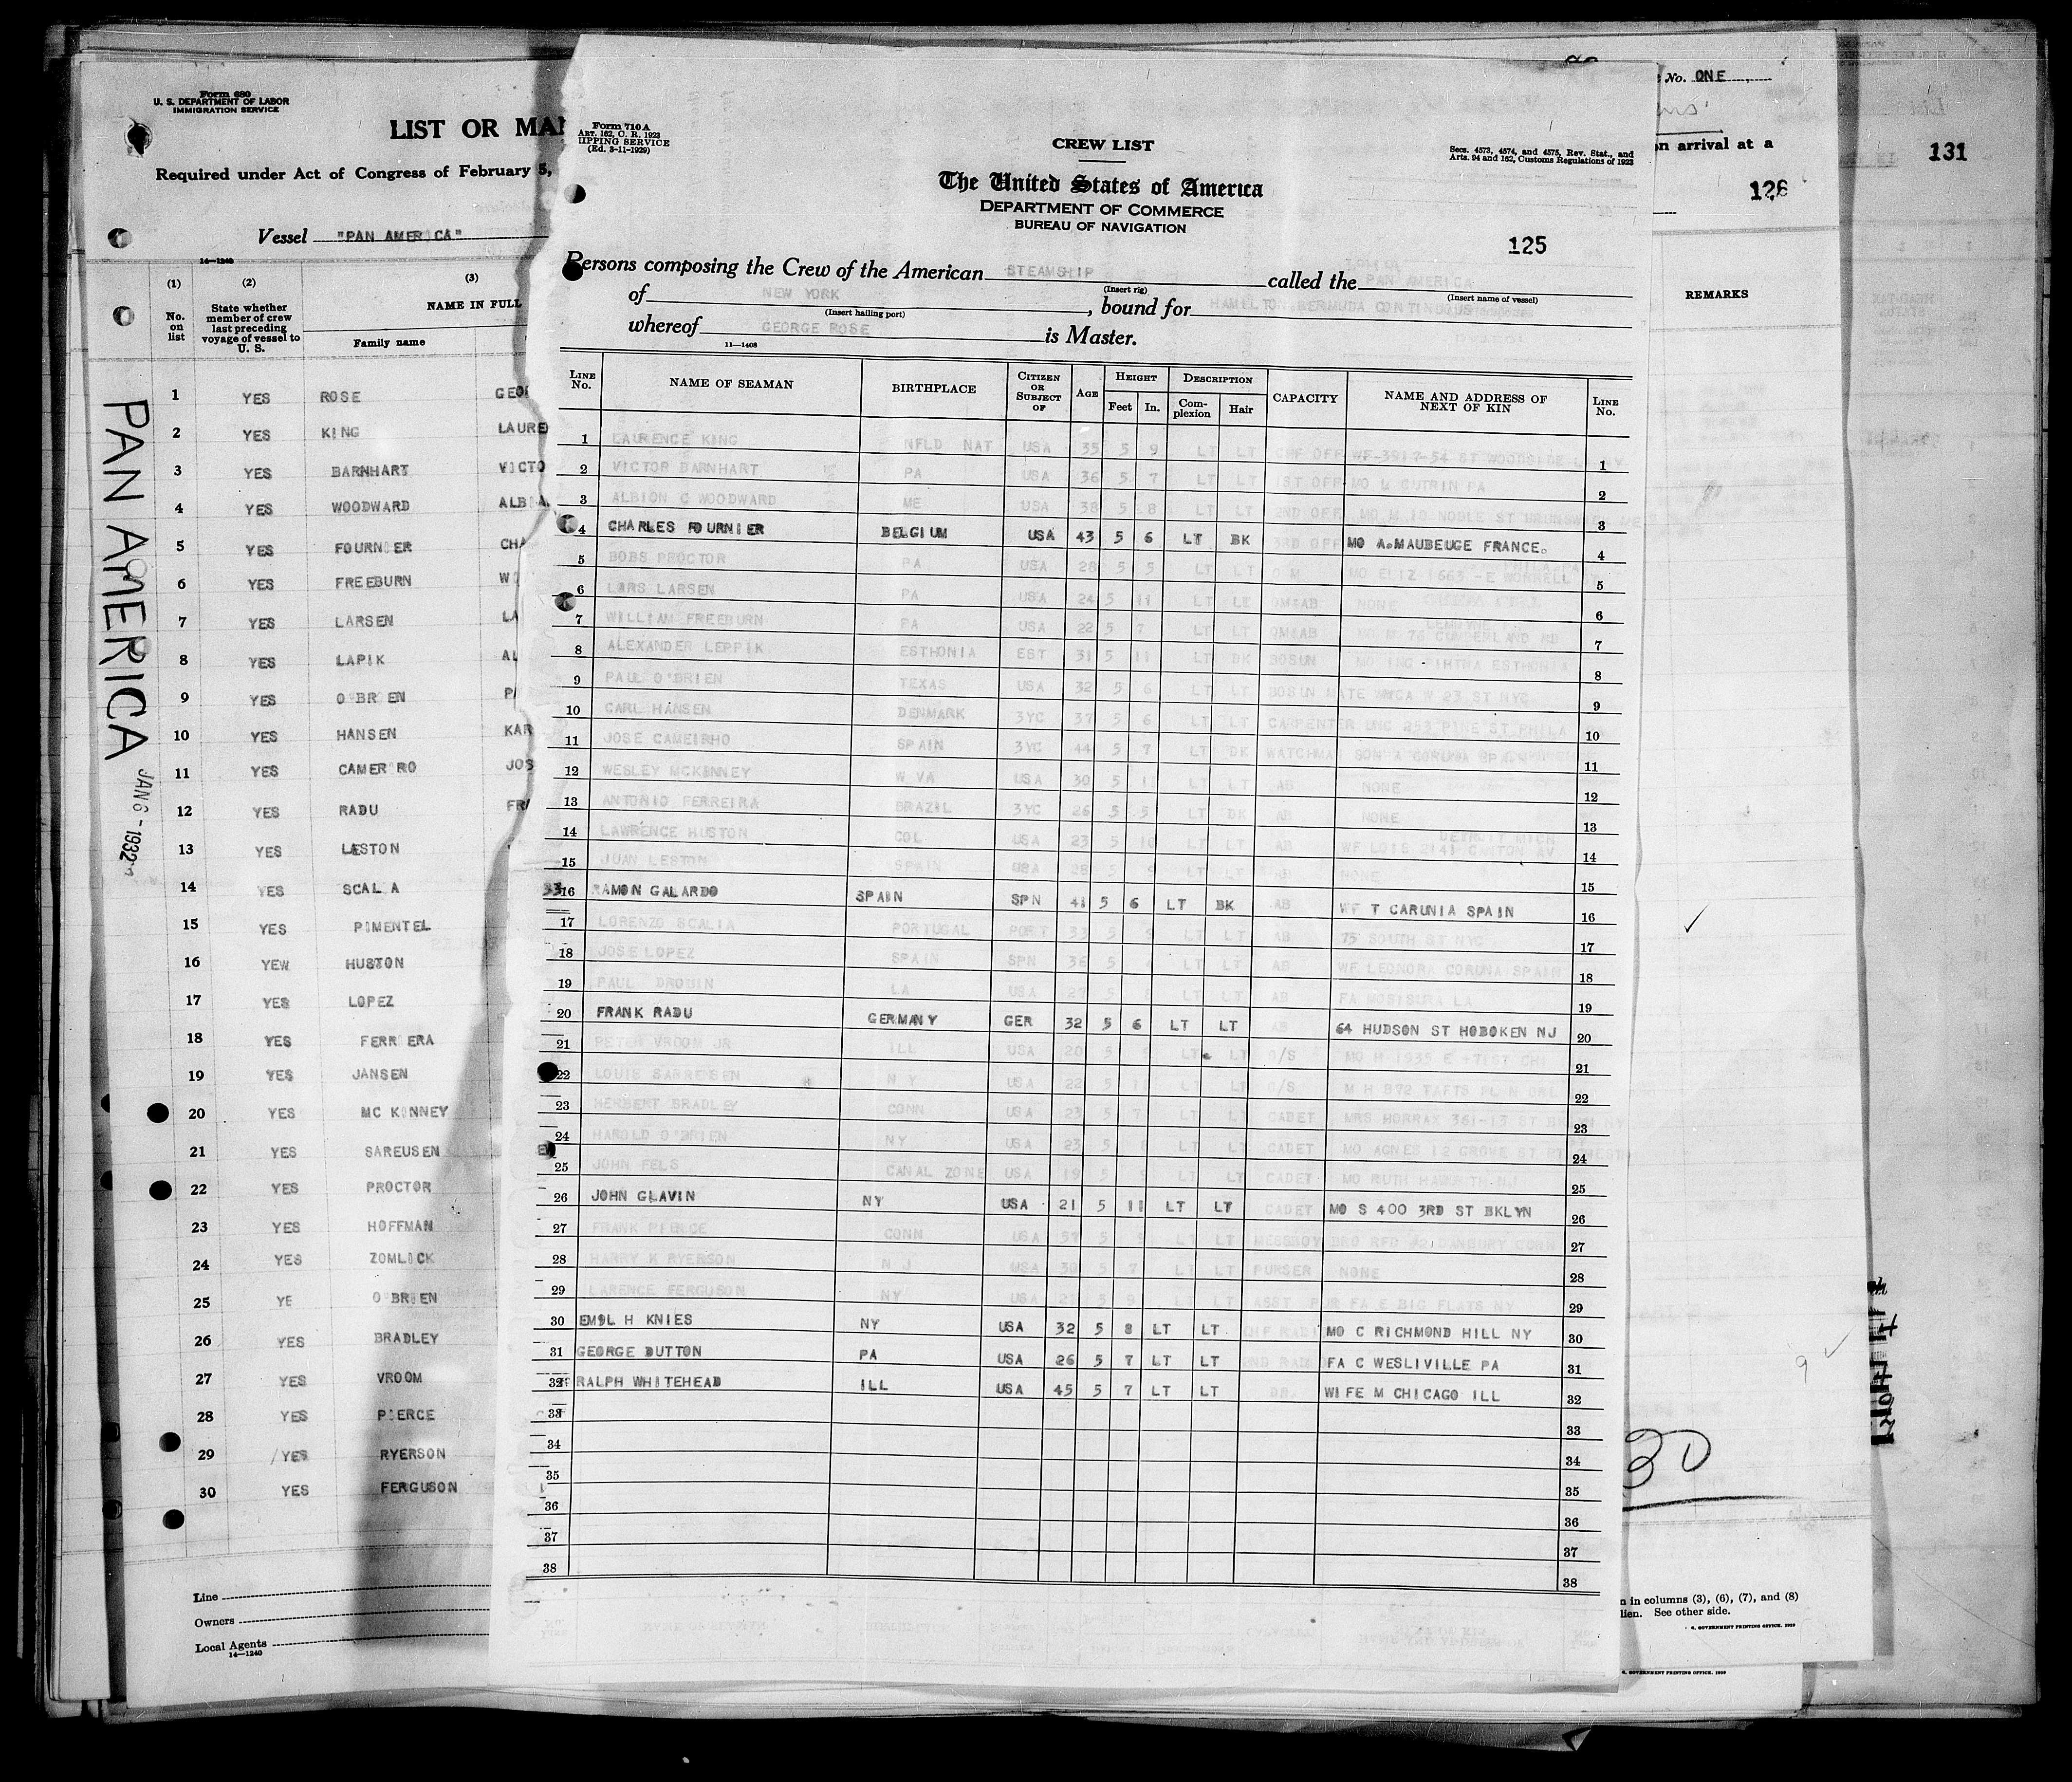 Form 680
U. S. DEPARTMENT OF LABOR
IMMIGRATION SERVICE
LIST OR MAN
Required under Act of Congress of February 5,
Vessel "PAN AMERICA"
14—1240
(1) (2) (3)
No. on list
State whether member of crew last preceding voyage of vessel to U. S.
NAME IN FULL
Family name
1 YES ROSE GEOR
2 YES KING LAURE
3 YES BARNHART VICTO
4 YES WOODWARD ALBIA
5 YES FOURNIER CHA
6 YES FREEBURN WI
7 YES LARSEN LA
8 YES LAPIK AL
9 YES O'BRIEN PA
10 YES HANSEN KAR
11 YES CAMEIRO JOS
12 YES RADU FRA
13 YES LESTON
14 YES SCALA
15 YES PIMENTEL
16 YEW HUSTON
17 YES LOPEZ
18 YES FERRIERA
19 YES JANSEN
20 YES MC KINNEY
21 YES SAREUSEN
22 YES PROCTOR
23 YES HOFFMAN
24 YES ZOMLICK
25 YE O'BRIEN
26 YES BRADLEY
27 YES VROOM
28 YES PIERCE
29 YES RYERSON
30 YES FERGUSON
Line
Owners
Local Agents
14—1240
PAN AMERICA
JAN 6 - 1932
Form 710A
ART. 162, C. R. 1923
HIPPING SERVICE
(Ed. 3-11-1929)
CREW LIST
The United States of America
DEPARTMENT OF COMMERCE
BUREAU OF NAVIGATION
Secs. 4573, 4574, and 4575, Rev. Stat., and
Arts. 94 and 162, Customs Regulations of 1923
125
Persons composing the Crew of the American STEAMSHIP called the PAN AMERICA
(Insert rig) (Insert name of vessel)
of NEW YORK, bound for HAMILTON BERMUDA CONTINUOUS
(Insert hailing port)
whereof GEORGE ROSE is Master.
11—1408
LINE No. NAME OF SEAMAN BIRTHPLACE CITIZEN OR SUBJECT OF AGE HEIGHT Feet In. DESCRIPTION Complexion Hair CAPACITY NAME AND ADDRESS OF NEXT OF KIN LINE No.
1 LAURENCE KING NFLD NAT USA 35 5 9 LT LT CHF OFF WF-3917-54 ST WOODSIDE 1
2 VICTOR BARNHART PA USA 36 5 7 LT LT 1ST OFF MO PA 2
3 ALBION C WOODWARD ME USA 38 5 8 LT LT 2ND OFF MO M 10 NOBLE ST BRUNSWICK ME 3
4 CHARLES FOURNIER BELGIUM USA 43 5 6 LT BK 3RD OFF MO A.MAUBEUGE FRANCE. 4
5 BOBS PROCTOR PA USA 28 5 5 LT LT Q M MO ELIZ 1663 -E WORRELL 5
6 LARS LARSEN PA USA 24 5 11 LT LT QM&AB NONE 6
7 WILLIAM FREEBURN PA USA 22 5 7 LT LT QM&AB MO M 76 CUMBERLAND RD 7
8 ALEXANDER LEPPIK ESTHONIA EST 31 5 11 LT DK BOSUN MO ESTHONIA 8
9 PAUL O'BRIEN TEXAS USA 32 5 6 LT LT BOSUN MATE YMCA W 23 ST NYC 9
10 CARL HANSEN DENMARK 3YC 37 5 6 LT LT CARPENTER UNC 253 PINE ST PHILA 10
11 JOSE CAMEIRHO SPAIN 3YC 44 5 7 LT DK WATCHMAN SON A CORUNA SPAIN 11
12 WESLEY MCKINNEY W VA USA 30 5 11 LT LT AB NONE 12
13 ANTONIO FERREIRA BRAZIL 3YC 26 5 5 LT DK AB NONE 13
DETROIT MICH
14 LAWRENCE HUSTON COL USA 23 5 10 LT LT AB WF LOIS 2141 CANTON AV 14
15 JUAN LESTON SPAIN USA 28 5 LT LT AB NONE 15
16 RAMON GALARDO SPAIN SPN 41 5 6 LT BK AB WF T CARUNIA SPAIN 16
17 LORENZO SCALIA PORTUGAL PORT 33 5 LT LT AB 75 SOUTH ST NYC 17
18 JOSE LOPEZ SPAIN SPN 36 5 LT LT AB WF LEONORA CORUNA SPAIN 18
19 PAUL DROUIN LA USA 27 5 LT LT AB FA LA 19
20 FRANK RADU GERMANY GER 32 5 6 LT LT AB 64 HUDSON ST HOBOKEN NJ 20
21 PETER VROOM JR ILL USA 20 5 LT LT O/S MO H 1935 E 71ST CHI 21
22 LOUIS SARRESEN N Y USA 22 5 11 LT LT O/S M H 872 TAFTS PL 22
23 HERBERT BRADLEY CONN USA 23 5 7 LT LT CADET MRS HORRAX 361-13 ST 23
24 HAROLD O'BRIEN NY USA 23 5 8 LT LT CADET MO AGNES 12 GROVE ST 24
25 JOHN FELS CANAL ZONE USA 19 5 LT LT CADET MO RUTH NJ 25
26 JOHN GLAVIN NY USA 21 5 11 LT LT CADET MO S 400 3RD ST BKLYN 26
27 FRANK PIERCE CONN USA 5 LT LT MESSBOY BRO RFD #2 DANBURY CONN 27
28 HARRY K RYERSON N J USA 30 5 7 LT LT PURSER NONE 28
29 LARENCE FERGUSON NY USA 5 9 LT LT ASST PUR FA E BIG FLATS NY 29
30 EMIL H KNIES NY USA 32 5 8 LT LT MO C RICHMOND HILL NY 30
31 GEORGE DUTTON PA USA 26 5 7 LT LT FA C WESLIVILLE PA 31
32 RALPH WHITEHEAD ILL USA 45 5 7 LT LT DR. WIFE M CHICAGO ILL 32
33 33
34 34
35 35
36 36
37 37
38 38
No. ONE
on arrival at a
126
131
REMARKS
30
n in columns (3), (6), (7), and (8)
lien. See other side.
G. GOVERNMENT PRINTING OFFICE. 1929
G. GOVERNMENT PRINTING OFFICE. 1930